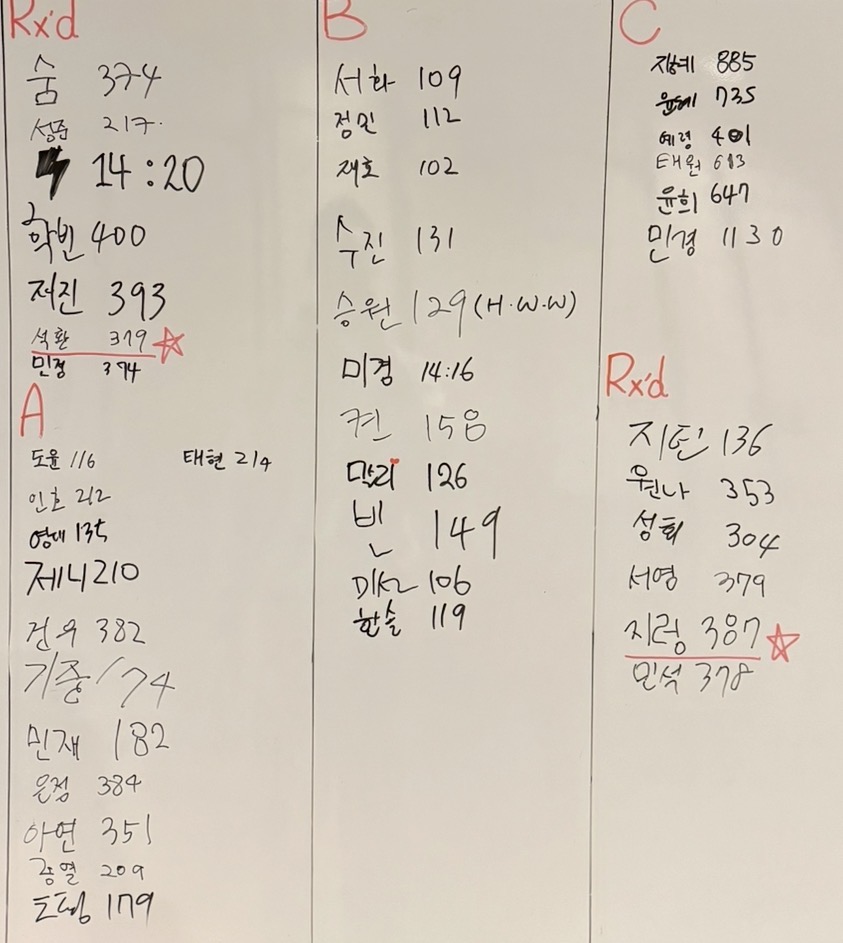 Rx'd
숨 374
성준 217.
14:20
학빈 400
저진 393
석환 379
민정 374
A
도윤 116 태현 214
인호 212
영대 135
제니 210
건우 382
기중 174
민재 182
은정 384
아연 351
종열 209
도형 179
B
서화 109
정민 112
재호 102
수진 131
승원 129 (H.W.W)
미경 14:16
켄 158
막리 126
빈 149
106
한슬 119
C
지혜 885
윤혜 735
예령 401
태원 613
윤희 647
민경 1130
Rx'd
지틴 136
원나 353
성희 304
서영 379
지령 387
민석 378